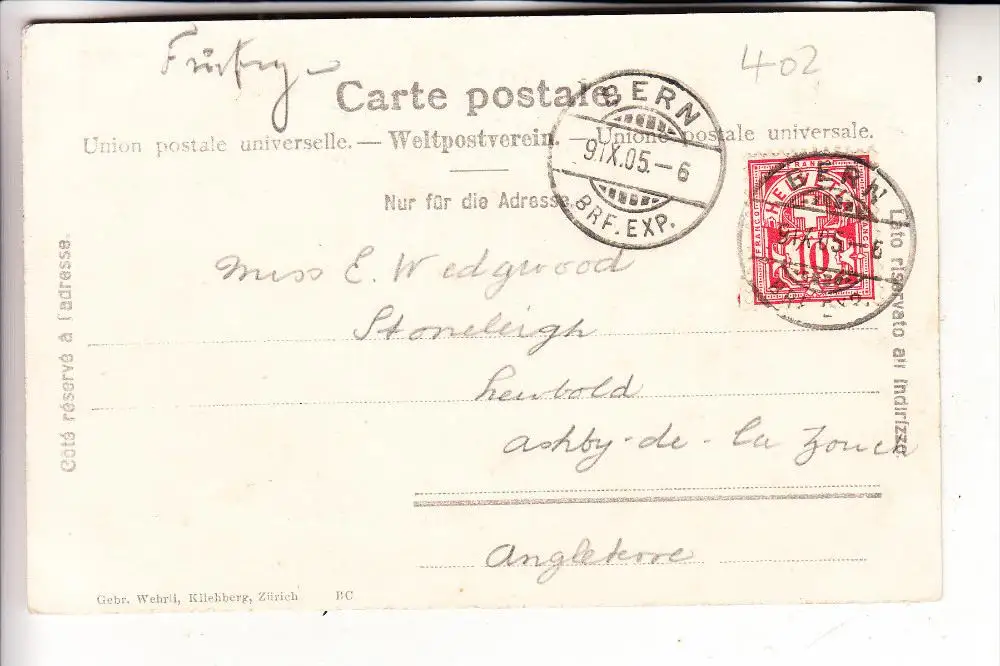 402
Carte postale.
Union postale universelle. — Weltpostverein. — Unione postale universale.
Nur für die Adresse.
BERN
9.IX.05.–6
BRF. EXP.
FRANCO
HELVETIA
10
BERN
9.IX.05–6
Côté réservé à l'adresse.
Lato riservato all'indirizzo.
Miss E. Wedgwood
Stoneleigh
Newbold
Ashby-de-la Zouch
Angleterre
Gebr. Wehrli, Kilchberg, Zürich BC